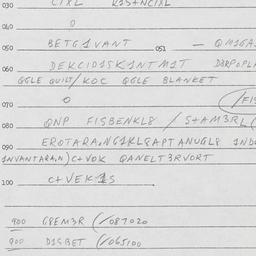 030 CIXL K1S+NCIXL
040 0
050 BETG1VANT 051 — QM1GA
060 DEKCID1SK1NTM1T D3RPOPLA
GGLE QUILT/KOC GGLE BLANKET
070 0 (/FIS
080 QNP FISBENKL8 / S+AM3RL(
090 EROTARA,NG1KL8APTANUGL8 1ND
1NVANTARA,N)C+VOK QANELT3RVORT
100 C+VEK1S
900 G8EM3R (/087020
900 D1SBET (/065100